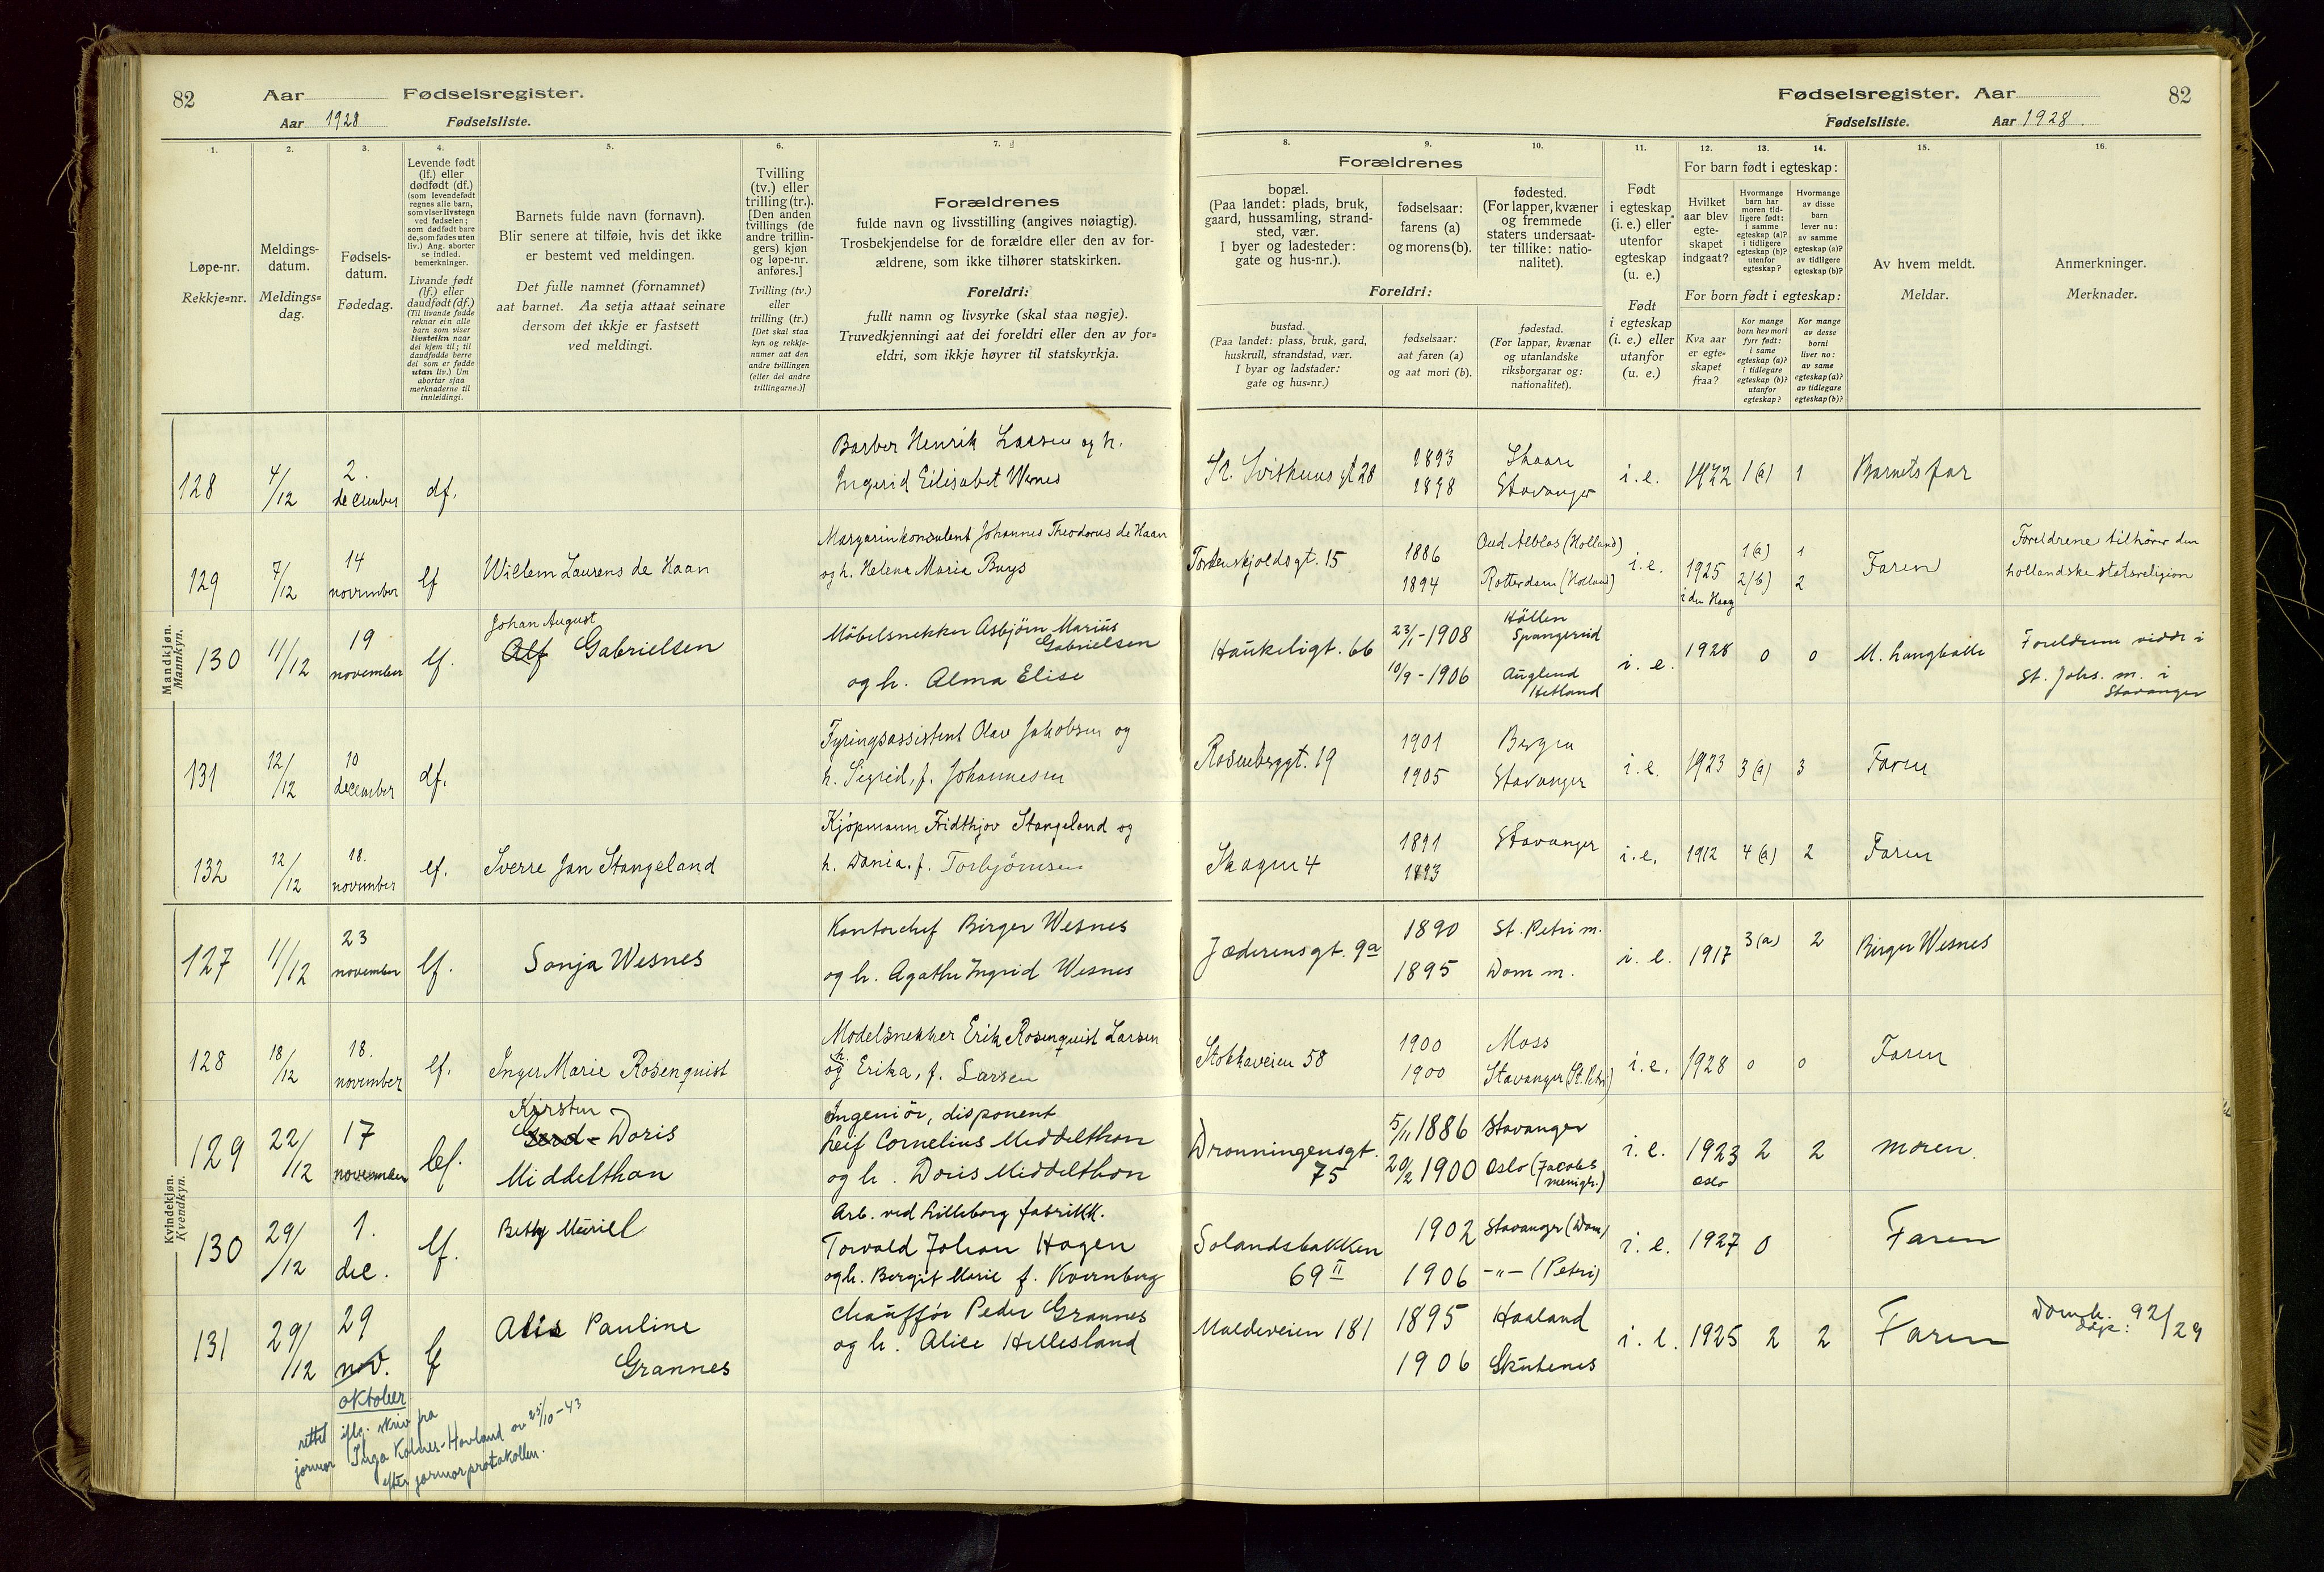 82 Aar Fødselsregister.
Aar 1928 Fødselsliste.
Fødselsregister. Aar 82
Fødselsliste. Aar 1928.
1. 2. 3. 4. 5. 6. 7.
Løpe-nr.
Rekkje=nr.
Meldings-
datum.
Meldings=
dag.
Fødsels-
datum.
Fødedag.
Levende født
(lf.) eller
dødfødt (df.)
(som levendefødt
regnes alle barn,
som viser livstegn
ved fødselen;
som dødfødt bare
de, som fødes uten
liv.) Ang. aborter
se indled.
bemerkninger.
Livande født
(lf.) eller
daudfødt (df.)
(Til livande fødde
reknar ein alle
barn som viser
livsteikn naar
dei kjem til; til
daudfødde berre
dei som er fødde
utan liv.) Um
abortar sjaa
merknaderne til
innleidingi.
Barnets fulde navn (fornavn).
Blir senere at tilføie, hvis det ikke
er bestemt ved meldingen.
Det fulle namnet (fornamnet)
aat barnet. Aa setja attaat seinare
dersom det ikkje er fastsett
ved meldingi.
Tvilling
(tv.) eller
trilling (tr.).
[Den anden
tvillings (de
andre trillin-
gers) kjøn
og løpe-nr.
anføres.]
Tvilling (tv.)
eller
trilling (tr.)
[Det skal staa
kyn og rekkje-
numer aat den
andre tvillingen
(eller dei andre
trillingarne.)]
Forældrenes
fulde navn og livsstilling (angives nøiagtig).
Trosbekjendelse for de forældre eller den av for-
ældrene, som ikke tilhører statskirken.
Foreldri:
fullt namn og livsyrke (skal staa nøgje).
Truvedkjenningi aat dei foreldri eller den av for=
eldri, som ikkje høyrer til statskyrkja.
8. 9. 10. 11. 12. 13. 14. 15. 16.
Forældrenes
bopæl.
(Paa landet: plads, bruk,
gaard, hussamling, strand-
sted, vær.
I byer og ladesteder:
gate og hus-nr.).
fødselsaar:
farens (a)
og morens (b).
fødested.
(For lapper, kvæner
og fremmede
staters undersaat-
ter tillike: natio-
nalitet).
Foreldri:
bustad.
(Paa landet: plass, bruk, gard,
huskrull, strandstad, vær.
I byar og ladstader:
gate og hus=nr.)
fødselsaar:
aat faren (a)
og aat mori (b).
fødestad.
(For lappar, kvænar
og utanlandske
riksborgarar og:
nationalitet).
Født
i egteskap
(i. e.) eller
utenfor
egteskap
(u. e.)
Født
i egteskap
(i. e.) eller
utanfor
(u. e.)
For barn født i egteskap:
Hvilket
aar blev
egte-
skapet
indgaat?
Hvormange
barn har
moren tid-
ligere født:
i samme
egteskap (a)?
i tidligere
egteskap (b)?
utenfor
egteskap?
Hvormange
av disse
barn
lever nu:
av samme
egteskap (a)?
av tidligere
egteskap (b)?
For born født i egteskap:
Kva aar
er egte=
skapet
fraa?
Kor mange
born hev mori
fyrr født:
i same
egteskap (a)?
i tidlegare
egteskap (b)?
utanfor
egteskap?
Kor mange
av desse
borni
liver no:
av same
egteskap (a)?
av tidlegare
egteskap (b)?
Av hvem meldt.
Meldar.
Anmerkninger.
Merknader.
Mandkjøn.
Mannkyn.
128 4/12 2. december df. Barber Henrik Larsen og h.
Ingerid Elisabet Wernes
St. Svithuns gt 28 1893 Skaare i.e. 1922 1(a) 1 Barnets far
1898 Stavanger
129 7/12 14 november lf Willem Laurens de Haan Margarinkonsulent Johannes Theodorus de Haan
og h. Helena Maria Buys
Tordenskjoldsgt. 15 1886 Oud Alblas (Holland) i.e. 1925 1(a) 1 Faren Foreldrene tilhører den
1894 Rotterdam (Holland) i den Haag 2(b) 2 hollandske statsreligion
130 11/12 19 november lf. Johan August
Alf Gabrielsen
Møbelsnekker Asbjørn Marius
Gabrielsen
og h. Alma Elise
Haukeligt. 66 23/1-1908 Høllen
Spangereid
10/9-1906 Auglend
Hetland
i.e. 1928 0 0 M. Langballe Foreldrene viddi i
St. Johs. m. i
Stavanger
131 12/12 10 december df. Fyringsassistent Olav Jakobsen og
h. Sigrid, f. Johannesen
Rosenberggt. 19 1901 Bergen i.e. 1923 3(a) 3 Faren
1905 Stavanger
132 12/12 18. november lf. Sverre Jan Stangeland Kjøpmann Fridthjov Stangeland og
h. Dania, f. Torbjørnsen
Skagen 4 1891 Stavanger i.e. 1912 4(a) 2 Faren
1893
Kvindekjøn.
Kvendkyn.
127 11/12 23 november lf. Sonja Wesnes Kontorchef Birger Wesnes
og h. Agathe Ingrid Wesnes
Jæderensgt. 9a 1890 St. Petri m. i.e. 1917 3(a) 2 Birger Wesnes
1895 Dom m.
128 18/12 18. november lf. Inger Marie Rosenquist Modelsnekker Erik Rosenquist Larsen
og h. Erika, f. Larsen
Stokkaveien 58 1900 Moss i.e. 1928 0 0 Faren
1900 Stavanger (St. Petri)
129 22/12 17 november lef. Kirsten
Gerd- Doris
Middelthon
Ingeniør, disponent
Leif Cornelius Middelthon
og h. Doris Middelthon
Dronningensgt.
75
5/11 1886 Stavanger
20/2 1900 Oslo (Jacobs
menigh.)
i.e. 1923 2 2 moren.
Oslo
130 29/12 1. dec. lf. Betty Müriel Arb. ved Lilleborg fabrikk.
Torvald Johan Hagen
og h. Bergit Marie f. Kvernberg
Solandsbakken
69 II
1902 Stavanger (Dom)
1906 -"- (Petri)
i.e. 1927 0 Faren
131 29/12 29 nov. lf Alis Pauline
Grannes
Chauffør Peder Grannes
og h. Alice Hellesland
Maldeveien 181 1895 Haaland i.e. 1925 2 2 Faren Domk.
døpt: 92/29
1906 Skutenes
oktober
rettet iflg. skriv fra
jormor Inga Kolnes-Hovland av 25/10-43
efter jormorprotokollen.